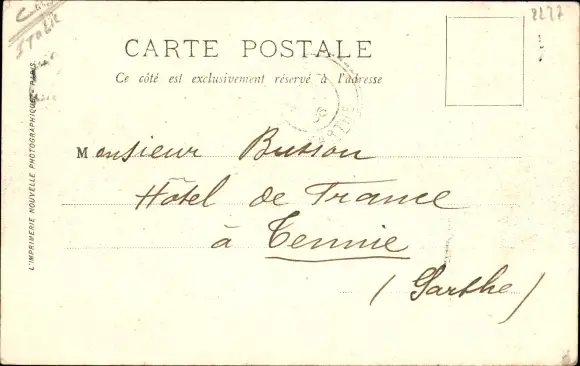 ITALIE
8227
CARTE POSTALE
Ce côté est exclusivement réservé à l'adresse
Monsieur Busson
Hôtel de France
à Tennie
(Sarthe)
L'IMPRIMERIE NOUVELLE PHOTOGRAPHIQUE - PARIS.